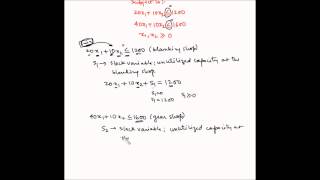 Subject to:
20x₁ + 10x₂ ≤ 1200
40x₁ + 10x₂ ≤ 1600
x₁, x₂ ≥ 0
20x₁ + 10x₂ ≤ 1200 (blanking shop)
S₁ → slack variable; unutilized capacity at the
blanking shop
20x₁ + 10x₂ + S₁ = 1200
S₁ = 0
S₁ = 1200 S₁ ≥ 0
40x₁ + 10x₂ ≤ 1600 (gear shop)
S₂ → slack variable; unutilized capacity at